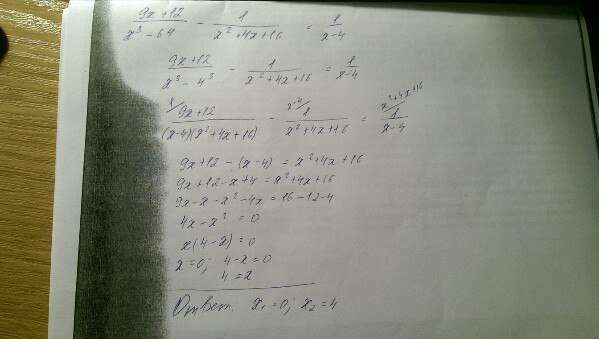 (9x+12)/(x³-64) - 1/(x²+4x+16) = 1/(x-4)
(9x+12)/(x³-4³) - 1/(x²+4x+16) = 1/(x-4)
1/ (9x+12)/((x-4)(x²+4x+16)) - x-4/ 1/(x²+4x+16) = x²+4x+16/ 1/(x-4)
9x+12-(x-4) = x²+4x+16
9x+12-x+4 = x²+4x+16
9x-x-x²-4x = 16-12-4
4x-x² = 0
x(4-x) = 0
x=0; 4-x=0
4=x
Ответ. x₁=0; x₂=4